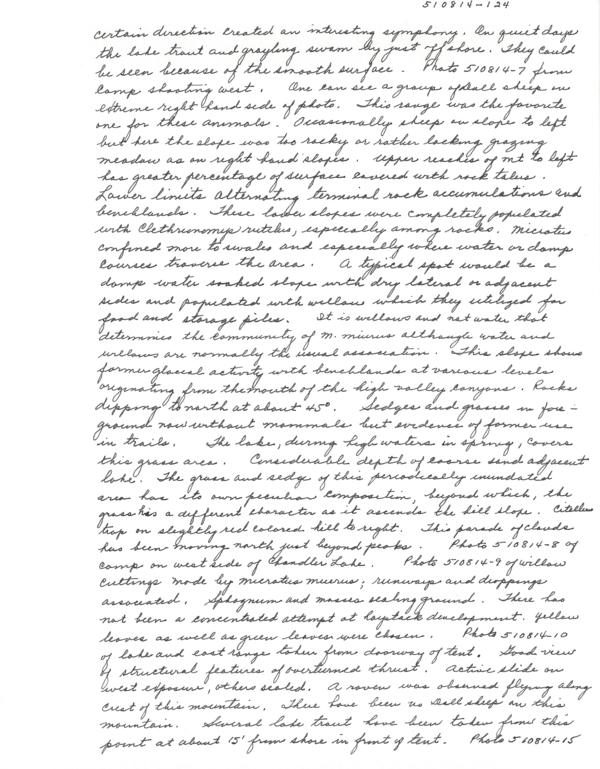 510814-124
certain direction created an interesting symphony. On quiet days
the lake trout and grayling swam by just off shore. They could
be seen because of the smooth surface. Photo 510814-7 from
camp shooting west. One can see a group of Dall sheep on
extreme right hand side of photo. This range was the favorite
one for these animals. Occasionally sheep on slope to left
but here the slope was too rocky or rather lacking grazing
meadow as on right hand slopes. Upper reaches of mt to left
has greater percentage of surface covered with rock talus.
Lower limits alternating terminal rock accumulations and
benchlands. These lower slopes were completely populated
with Clethrionomys rutilus, especially among rocks. Microtus
confined more to swales and especially where water or damp
courses traverse the area. A typical spot would be a
damp water soaked slope with dry lateral or adjacent
sides and populated with willow which they utilized for
food and storage piles. It is willows and not water that
determines the community of M. miurus although water and
willows are normally the usual association. This slope shows
former glacial activity with benchlands at various levels
originating from the mouth of the high valley canyons. Rocks
dipping to north at about 45°. Sedges and grasses in fore-
ground now without mammals but evidence of former use
in trails. The lake, during high waters in spring, covers
this grass area. Considerable depth of coarse sand adjacent
lake. The grass and sedge of this periodically inundated
area has its own peculiar composition, beyond which, the
grass has a different character as it ascends the hill slope. Citellus
trap on slightly red colored hill to right. This parade of clouds
has been moving north just beyond peaks. Photo 510814-8 of
camp on west side of Chandler Lake. Photo 510814-9 of willow
cuttings made by microtus miurus; runways and droppings
associated. Sphagnum and mosses sealing ground. There has
not been a concentrated attempt at haystack development. Yellow
leaves as well as green leaves were chosen. Photo 510814-10
of lake and east range taken from doorway of tent. Good view
of structural features of overturned thrust. Active slide on
west exposure, others sealed. A raven was observed flying along
crest of this mountain. There have been no Dall sheep on this
mountain. Several lake trout have been taken from this
point at about 15' from shore in front of tent. Photo 510814-15